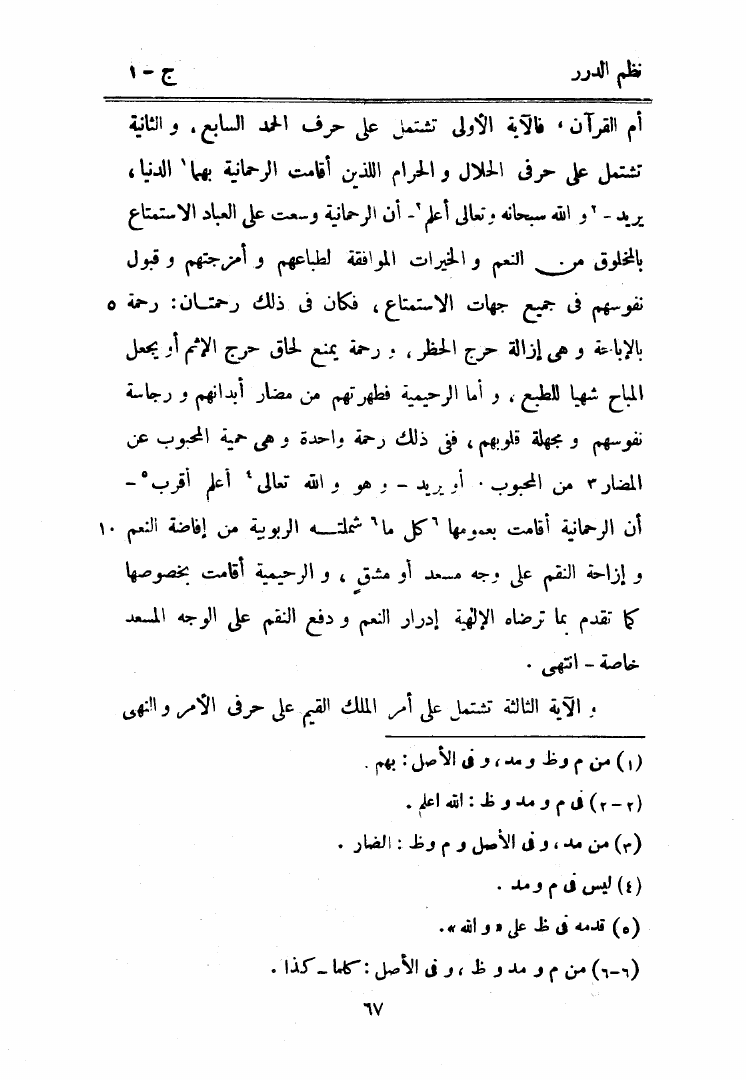 نظم الدرر ج - ١
أم القرآن، فالآية الأولى تشتمل على حرف الحمد السابع، و الثانية
تشتمل على حرفى الحلال و الحرام اللذين أقامت الرحمانية بهما١ الدنيا،
يريد - ٢و الله سبحانه وتعالى أعلم٢ - أن الرحمانية وسعت على العباد الاستمتاع
بالمخلوق من النعم و الخيرات الموافقة لطباعهم و أمزجتهم و قبول
نفوسهم فى جميع جهات الاستمتاع، فكان فى ذلك رحمتان: رحمة ٥
بالإباحة و هى إزالة حرج الحظر، و رحمة يمنع لحاق حرج الإثم أو يجعل
المباح شهيا للطبع، و أما الرحيمية فطهرتهم من مضار أبدانهم و رجاسة
نفوسهم و مجهلة قلوبهم، ففى ذلك رحمة واحدة و هى حمية المحبوب عن
المضار٣ من المحبوب . أو يريد - و هو و الله تعالى٤ أعلم أقرب٥ -
أن الرحمانية أقامت بعمومها ٦كل ما٦ شملته الربوبية من إفاضة النعم ١٠
و إزاحة النقم على وجه مسعد أو مشقٍ، و الرحيمية أقامت بخصوصها
كما تقدم بما ترضاه الإلهية إدرار النعم و دفع النقم على الوجه المسعد
خاصة - انتهى .
و الآية الثالثة تشتمل على أمر الملك القيم على حرفى الأمر و النهى
(١) من م وظ و مد، و فى الأصل: بهم .
(٢-٢) فى م و مد و ظ: الله اعلم .
(٣) من مد، و فى الأصل و م وظ: الضار .
(٤) ليس فى م و مد .
(٥) قدمه فى ظ على «و الله».
(٦-٦) من م و مد و ظ، و فى الأصل: كلما - كذا .
٦٧